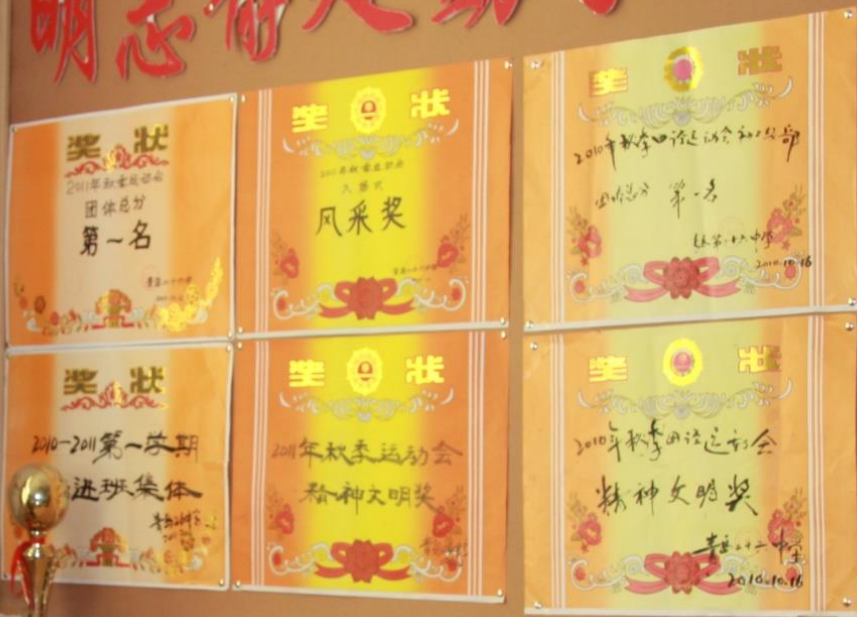 明志
奖状
2011年秋季运动会
团体总分
第一名
奖状
2011年秋季运动会
入场式
风采奖
奖状
2010年秋季田径运动会初二级部
团体总分 第一名
2010.10.16
奖状
2010-2011第一学期
进班集体
奖状
2011年秋季运动会
精神文明奖
奖状
2010年秋季田径运动会
精神文明奖
2010.10.16